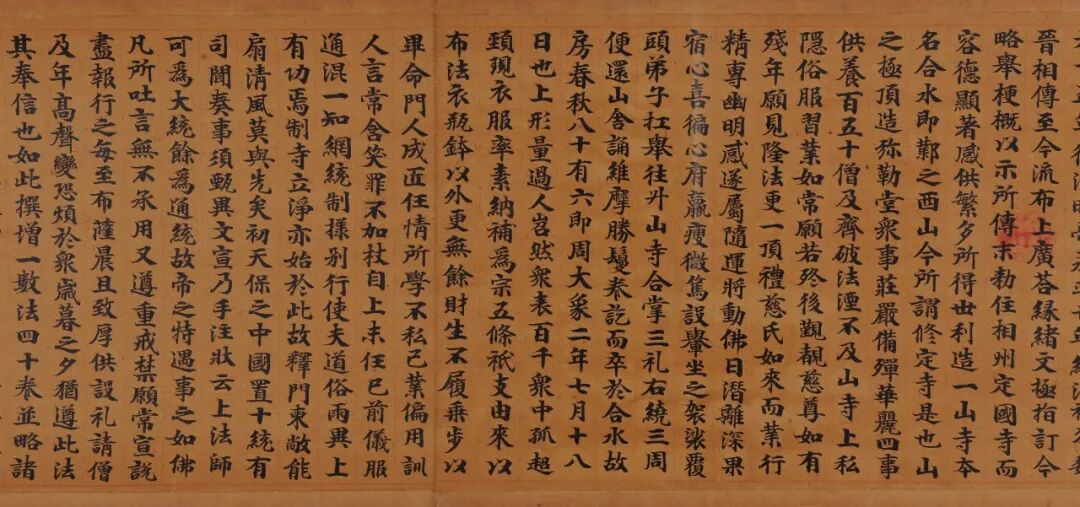 晉相傳至今流布上廣荅緣緒文極指訂今
略舉梗概以示所傳末勑住相州定國寺而
容德顯著感供繁多所得世利造一山寺本
名合水即鄴之西山今所謂修定寺是也山
之極頂造弥勒堂衆事莊嚴備殫華麗四事
供養百五十僧及齊破法湮不及山寺上私
隱俗服習業如常願若終後覲覩慈尊如有
殘年願見隆法更一頂禮慈氏如來而業行
精專幽明感遂屬隨運將動佛日潛離深果
宿心喜徧心府羸瘦微篤設轝坐之袈裟覆
頭弟子扛舉往升山寺合掌三礼右繞三周
便還山舍誦維摩勝鬘卷訖而卒於合水故
房春秋八十有六即周大象二年七月十八
日也上形量過人岧然衆表百千衆中孤超
頚現衣服率素納補爲宗五條祇支由來以
布法衣瓶鉢以外更無餘財生不履乗步以
畢命門人成匠任情所學不私己業偏用訓
人言常含笑罪不加杖自上未任已前儀服
通混一知綱統制樣別行使夫道俗兩異上
有功焉制寺立淨亦始於此故釋門東敞能
扇清風莫與先矣初天保之中國置十統有
司聞奏事須甄異文宣乃手注狀云上法師
可爲大統餘爲通統故帝之特遇事之如佛
凡所吐言無不承用又遵重戒禁願常宣說
盡報行之每至布薩晨旦致厚供設礼請僧
及年髙聲變恐煩於衆歲暮之夕猶遵此法
其奉信也如此撰增一數法四十卷並略諸